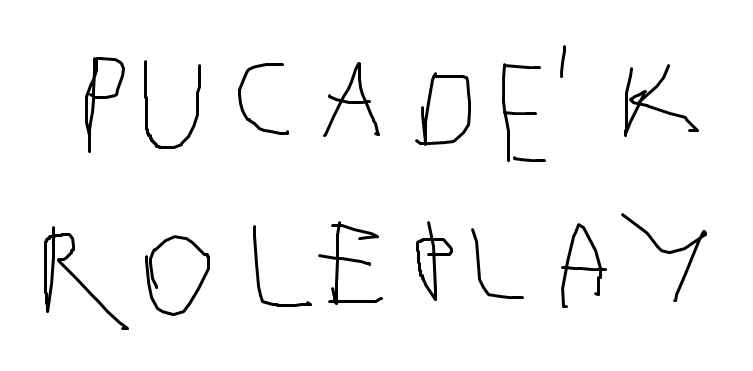 PUCADE'K
ROLEPLAY